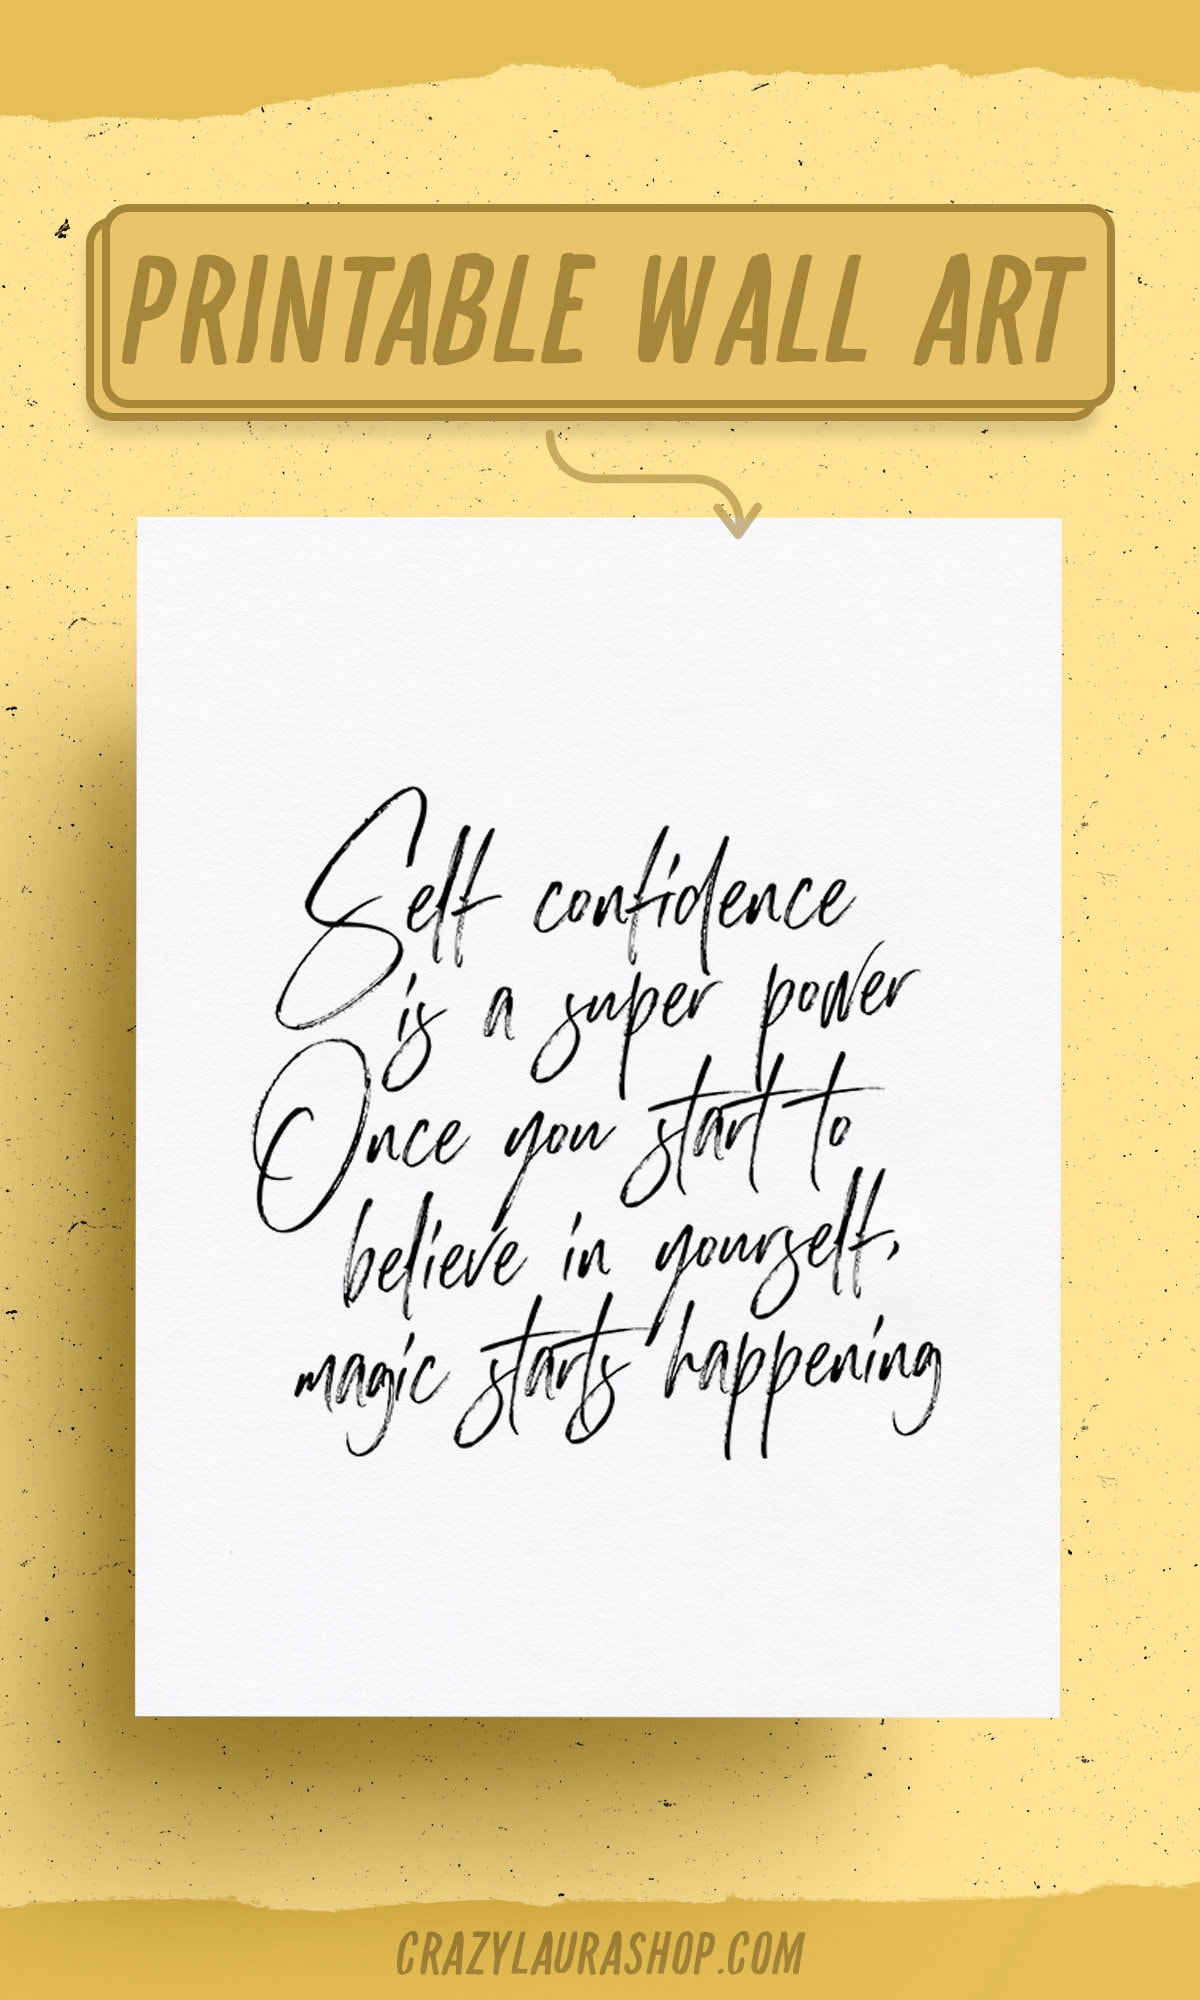 PRINTABLE WALL ART
Self confidence
is a super power
Once you start to
believe in yourself,
magic starts happening
CRAZYLAURASHOP.COM